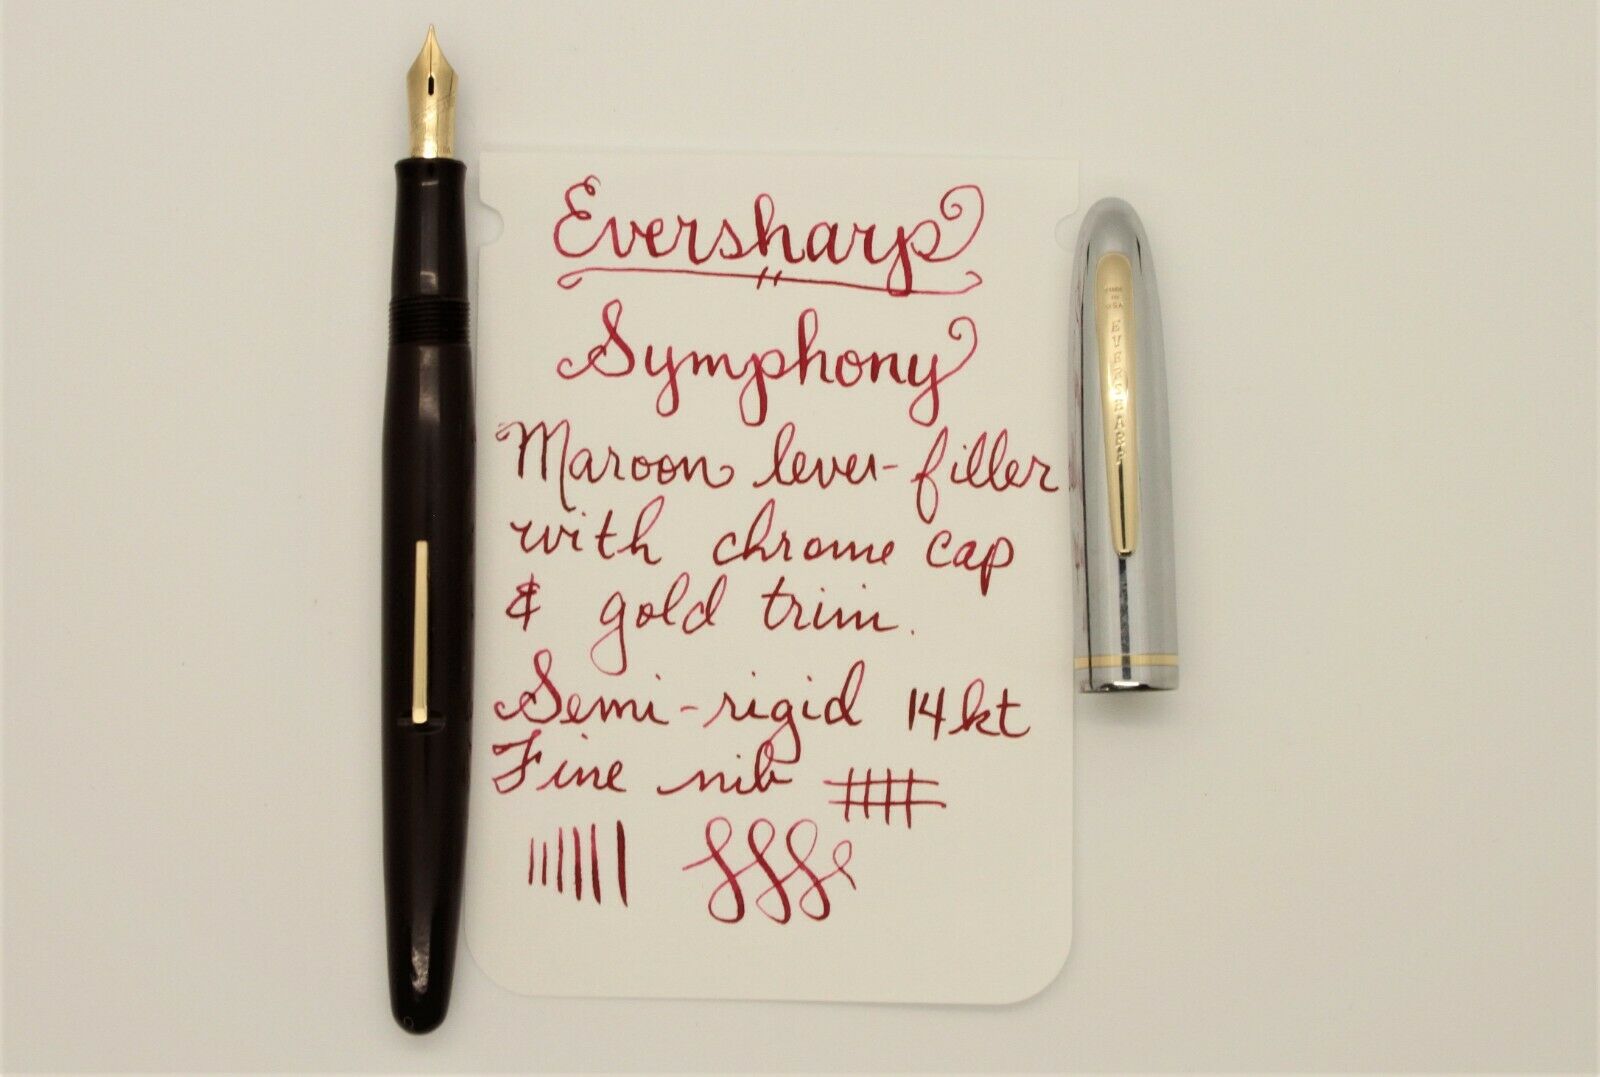 Eversharp
Symphony
Maroon lever-filler
with chrome cap
& gold trim.
Semi-rigid 14kt
Fine nib
MADE
IN
U.S.A
EVERSHARP